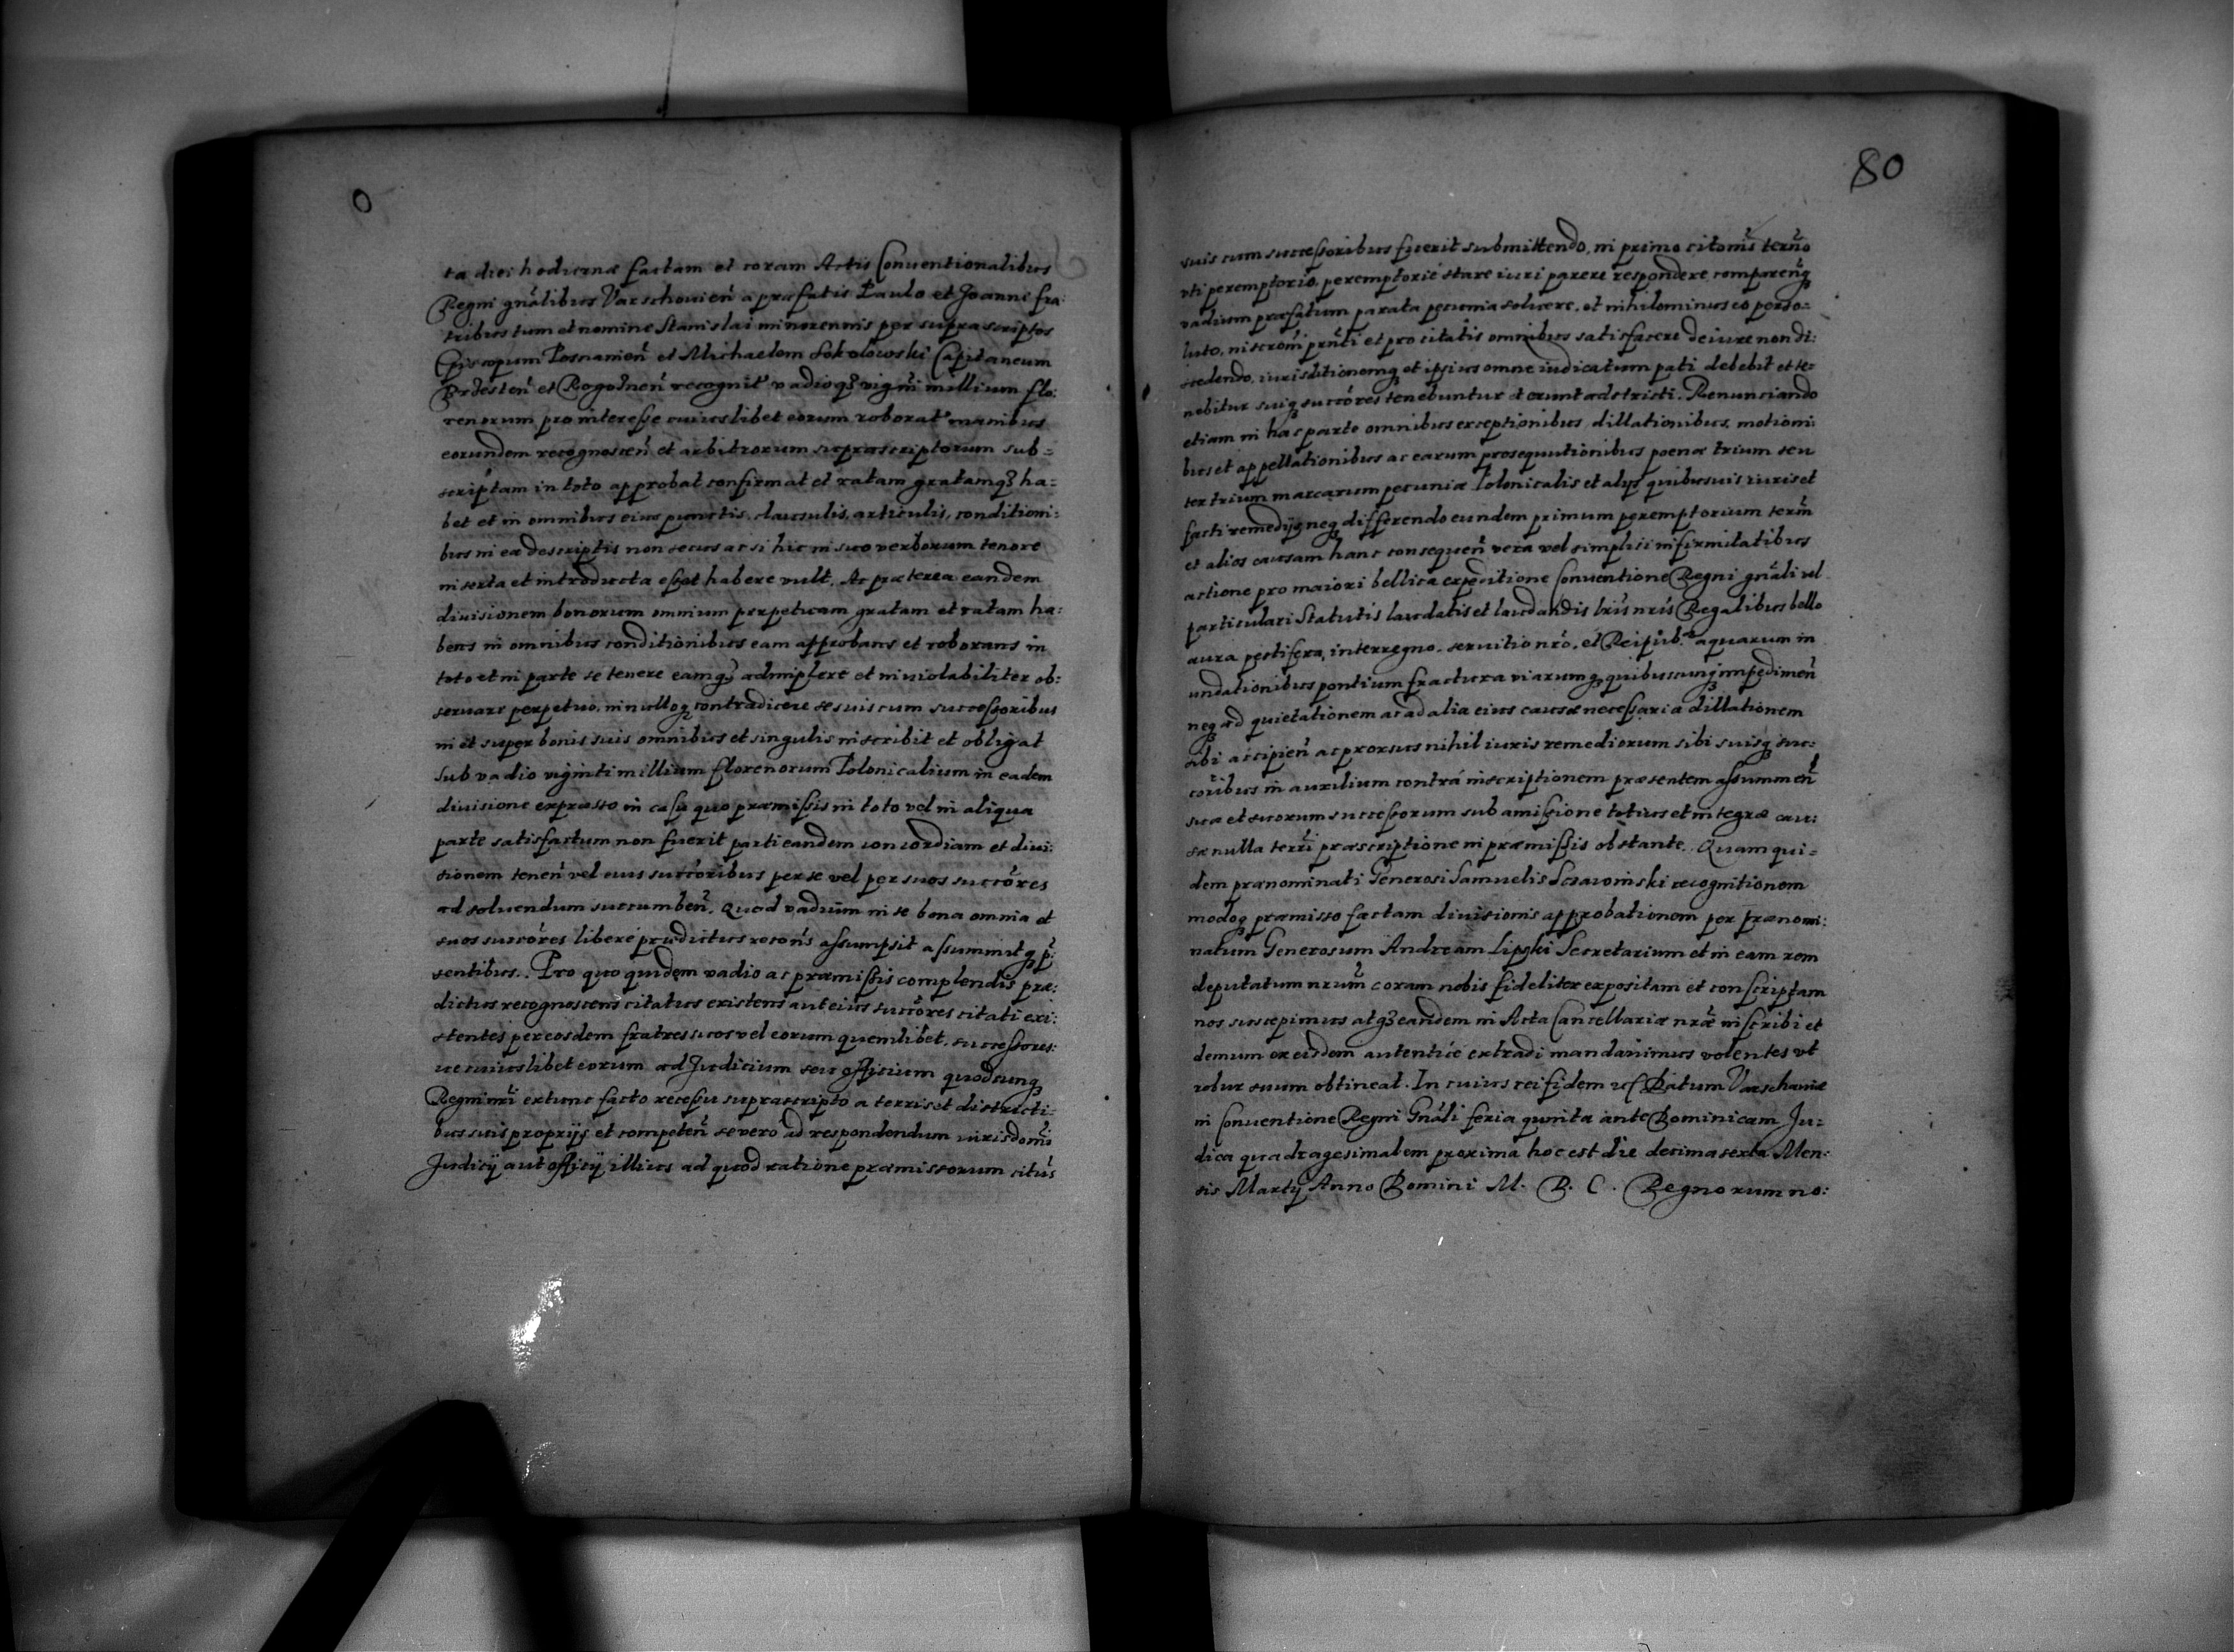 0
ta diei hodiernæ factam et coram Actis Conuentionalibus
Regni gnâlibus Varschouień a præfatis Paulo et Joanne fra:
tribus tum et nomine Stanislai minorennis per suprascriptos
Episcopum Posnanień et Michaelem Sokolowski Capitaneum
Brzesteń et Rogoźneń recognit vadioqȝ vigm̃i millium flo:
renorum pro interesse cuiuslibet eorum roborat manibus
eorundem recognosceń et arbitrorum suprascriptorum sub=
scriptam in toto approbat confirmat et ratam gratamqȝ ha=
bet et in omnibus eius punctis, clausulis, articulis, conditioni:
bus in ea descriptis non secus ac si hic in suo verborum tenore
inserta et introducta esset habere vult. Ac præterea eandem
diuisionem bonorum omnium perpetuam gratam et ratam ha:
bens in omnibus conditionibus eam approbans et roborans in
toto et in parte se tenere eamqȝ adimplere et inuiolabiliter ob:
seruare perpetuo, in nulloqȝ contradicere se suis cum successoribus
in et super bonis suis omnibus et singulis inscribit et obligat
sub vadio viginti millium florenorum Polonicalium in eadem
diuisione expresso in casu quo præmissis in toto vel in aliqua
parte satisfactum non fuerit parti eandem concordiam et diui:
sionem teneń vel eius succ̃oribus per se vel per suos succ̃ores
ad soluendum succumbeń. Quod vadium in se bona omnia et
suos succ̃ores libere prædictus recoñs assumpsit assummitqȝ p̃:
sentibus. Pro quo quidem vadio ac præmissis complendis præ:
dictus recognoscens citatus existens aut eius succ̃ores citati exi:
stentes per eosdem fratres suos vel eorum quemlibet, successores:
ue cuiuslibet eorum ad Judicium seu officium quodcunqȝ
Regni nr̃i extunc facto recessu suprascripto a terris et districti=
bus suis proprijs et competeń se vero ad respondendum iurisdom̃i
Judicij aut officij illius ad quod ratione præmissorum citus̃
80
suis cum successoribus fuerit submittendo, in primo citonis̃ term̃o
vti peremptorio, peremptorie stare iuri parere respondere compareńqȝ
vadium præfatum parata pecunia soluere, et nihilominus eo perso=
luto, inscrom̃i prñti et pro citatis omnibus satisfacere de iure non di:
scedendo, iurisditionemqȝ et ipsius omne iudicatum pati debebit et te:
nebitur suiqȝ succ̃ores tenebuntur et erunt adstricti. Renunciando
etiam in hac parte omnibus exceptionibus, dillationibus, motioni:
bus et appellationibus ac earum prosequutionibus poenæ trium seu
ter trium marcarum pecuniæ Polonicalis et alijs quibusuis iuris et
facti remedijs neqȝ differendo eundem primum peremptorium term̃
et alios causam hanc consequeń vera vel simplici infirmitatibus
actione pro maiori bellica expeditione Conuentione Regni gnâli vel
particulari Statutis laudatis et laudandis lr̃is nr̃is Regalibus bello
aura pestifera, interregno, seruitio nr̃o, et Reipub. aquarum in
undationibus pontium fractura viarumqȝ quibuscunqȝ impedimeń
neqȝ ad quietationem ac ad alia eius causæ necessaria dillationem
sibi accipień ac prorsus nihil iuris remediorum sibi suisqȝ suc:
cor̃ibus in auxilium contrá inscriptionem præsentem assummeń
sua et suorum successorum sub amissione totius et integræ cau:
sæ nulla terr̃i præscriptione in præmissis obstante. Quam qui=
dem prænominati Generosi Samuelis recognitionem
modoqȝ præmisso factam diuisionis approbationem per prænomi:
natum Generosum Andream Lipski Secretarium et in eam rem
deputatum nr̃um coram nobis fideliter expositam et conscriptam
nos suscepimus atqȝ eandem in Acta Cancellariæ nr̃æ inscribi et
demum ex eisdem autentice extradi mandauimus volentes vt
robur suum obtineat. In cuius rei fidem Datum Varschauiæ
in Conuentione Regni Gnâli feria quinta ante Dominicam Ju:
dica quadragesimalem proxima hoc est die decima sexta Men:
sis Martij Anno Domini M. D. C. Regnorum no: